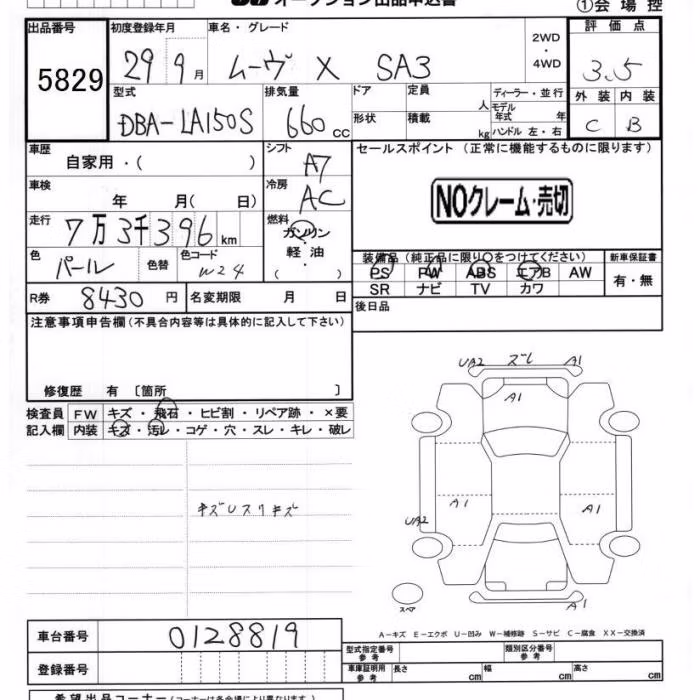 オークション出品申込書
①会場控
出品番号 初度登録年月 車名・グレード 評価点
5829 29 9月 ムーヴ X SA3 2WD・4WD 3.5
型式 排気量 ドア 定員 人 ディーラー・並行 外装 内装
DBA-LA150S 660cc 形状 積載 kg モデル年式 年 ハンドル 左・右 C B
車歴 自家用・( ) シフト A7 セールスポイント (正常に機能するものに限ります)
車検 年 月( 日) 冷房 AC NOクレーム・売切
走行 7万3千396km 燃料 ガソリン・軽油 ( )
色 パール 色替 色コード W24 装備品 (純正品に限り○をつけてください) 新車保証書
PS PW ABS エアB AW 有・無
SR ナビ TV カワ
R券 8430円 名変期限 月 日 後日品
注意事項申告欄(不具合内容等は具体的に記入して下さい)
修復歴 有 〔箇所 〕
検査員 FW キズ・飛石・ヒビ割・リペア跡・×要
記入欄 内装 キズ・汚レ・コゲ・穴・スレ・キレ・破レ
キズUスリキズ
UA2 ズレ A1
A1
A1 A1
UA2
スペア A1
A-キズ E-エクボ U-凹み W-補修跡 S-サビ C-腐食 XX-交換済
車台番号 0128819
型式指定番号 参考 類別区分番号 参考
登録番号 車庫証明用 参考 長さ cm 幅 cm 高さ cm
希望出品コーナー(コーナーは各会場により異なります。)